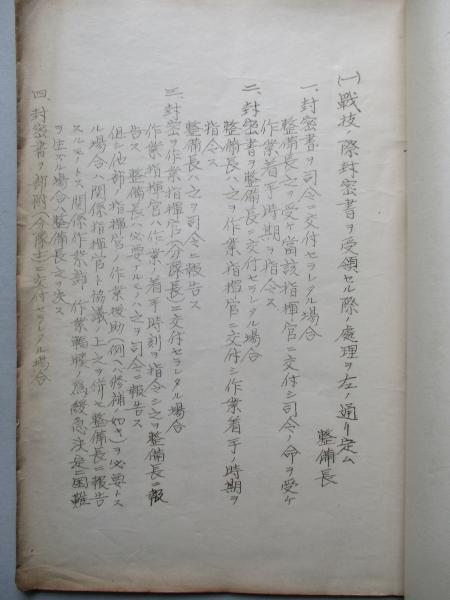 (一)戦技ノ際封密書ヲ受領セル際ノ處理ヲ左ノ通リ定ム
整備長
一、封密書ヲ司令ニ交付セラレタル場合
整備長之ヲ受ケ當該指揮官ニ交付シ司令ノ命ヲ受ケ
作業着手時期ヲ指令ス
二、封密書ヲ整備長ニ交付セラレタル場合
整備長ハ之ヲ作業指揮官ニ交付シ作業着手ノ時期ヲ
指令ス
整備長ハ之ヲ司令ニ報告ス
三、封密ヲ作業指揮官(分隊長)ニ交付セラレタル場合
作業指揮官ハ作業ノ着手時刻ヲ指令シ之ヲ整備長ニ報
告ス 整備長ハ必要アルモノハ之ヲ司令ニ報告ス
但シ他部ノ指揮官ノ作業援助(例ヘバ 補ノ如キ)ヲ必要トス
ル場合ハ関係指揮官ト協議ノ上之ヲ併セ整備長ニ報告
スルモトス関係作業部ノ作業 ノ為緩急決定ニ困難
ヲ生ズル場合ハ整備長之ヲ決ス
四、封密書ヲ部附(分隊士)ニ交付セラレタル場合